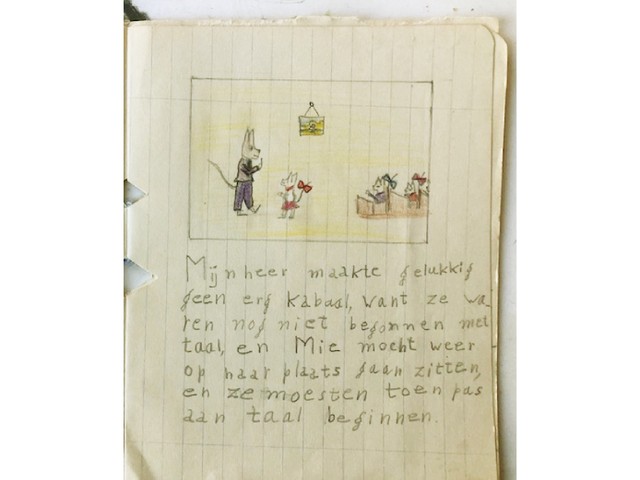 Mijnheer maakte gelukkig
geen erg kabaal, want ze wa
ren nog niet begonnen met
taal, en Mie mocht weer
op haar plaats gaan zitten,
en ze moesten toen pas
aan taal beginnen.